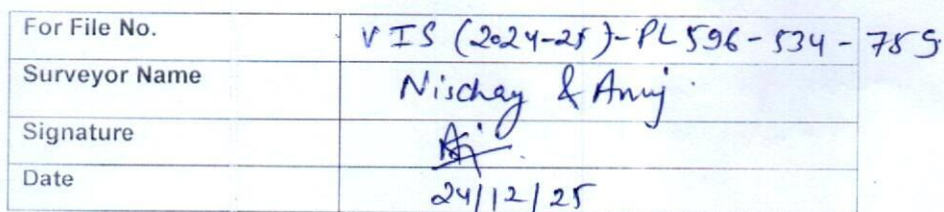 For File No. VIS (2024-25)-PL596-534-759
Surveyor Name Nischay & Anuj
Signature
Date 24/12/25